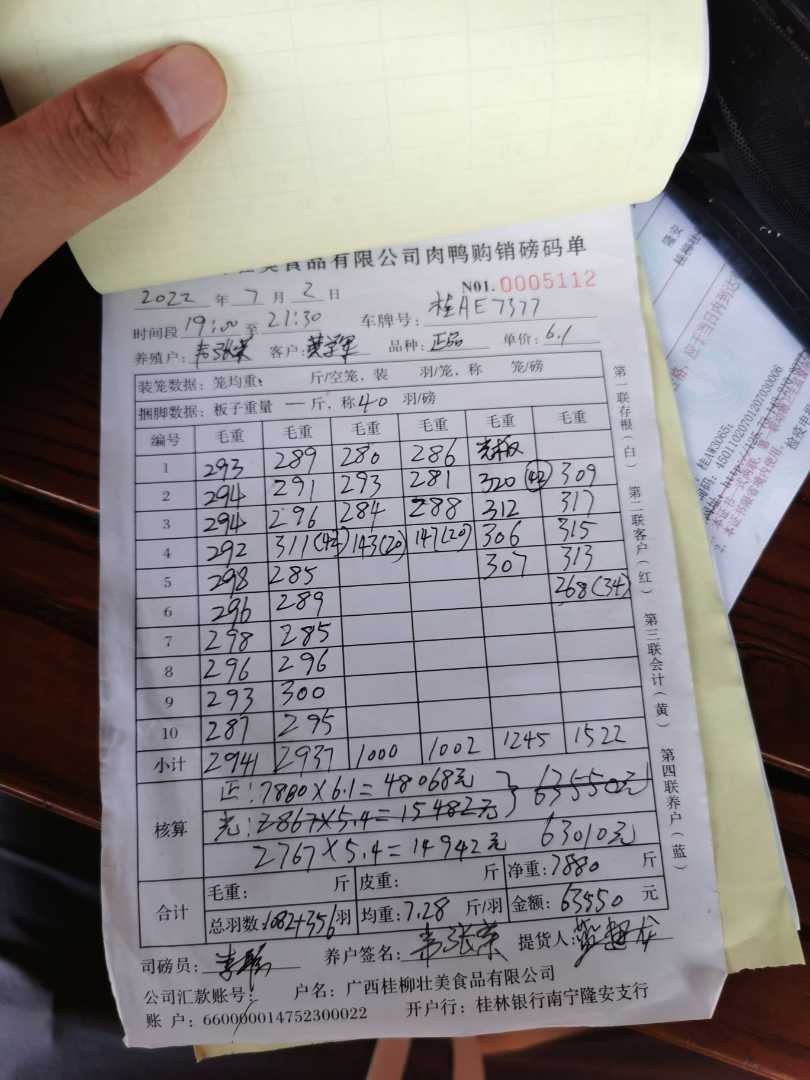 美食品有限公司肉鸭购销磅码单
NO1. 0005112
2022 年 7 月 2 日
时间段 19:00 至 21:30 车牌号: 桂AE7377
养殖户: 韦张荣 客户: 品种: 正品 单价: 6.1
装笼数据: 笼均重: 斤/空笼, 装 羽/笼, 称 笼/磅
捆脚数据: 板子重量 — 斤, 称 40 羽/磅
编号 毛重 毛重 毛重 毛重 毛重 毛重
1 293 289 280 286
2 294 291 293 281 320 (42) 309
3 294 296 284 288 312 317
4 292 311(42) 143(20) 147(20) 306 315
5 298 285 307 313
6 296 289 268(34)
7 298 285
8 296 296
9 293 300
10 287 295
小计 2941 2937 1000 1002 1245 1522
核算
正: 7880×6.1=48068元 63550元
光: 2867×5.4=15482元
2767×5.4=14942元 63010元
合计
毛重: 斤 皮重: 斤 净重: 7880 斤
总羽数: 1082+356 羽 均重: 7.28 斤/羽 金额: 63550 元
司磅员: 养户签名: 韦张荣 提货人:
公司汇款账号: 户名: 广西桂柳壮美食品有限公司
账 户: 660000014752300022 开户行: 桂林银行南宁隆安支行
第一联存根(白)
第二联客户(红)
第三联会计(黄)
第四联养户(蓝)